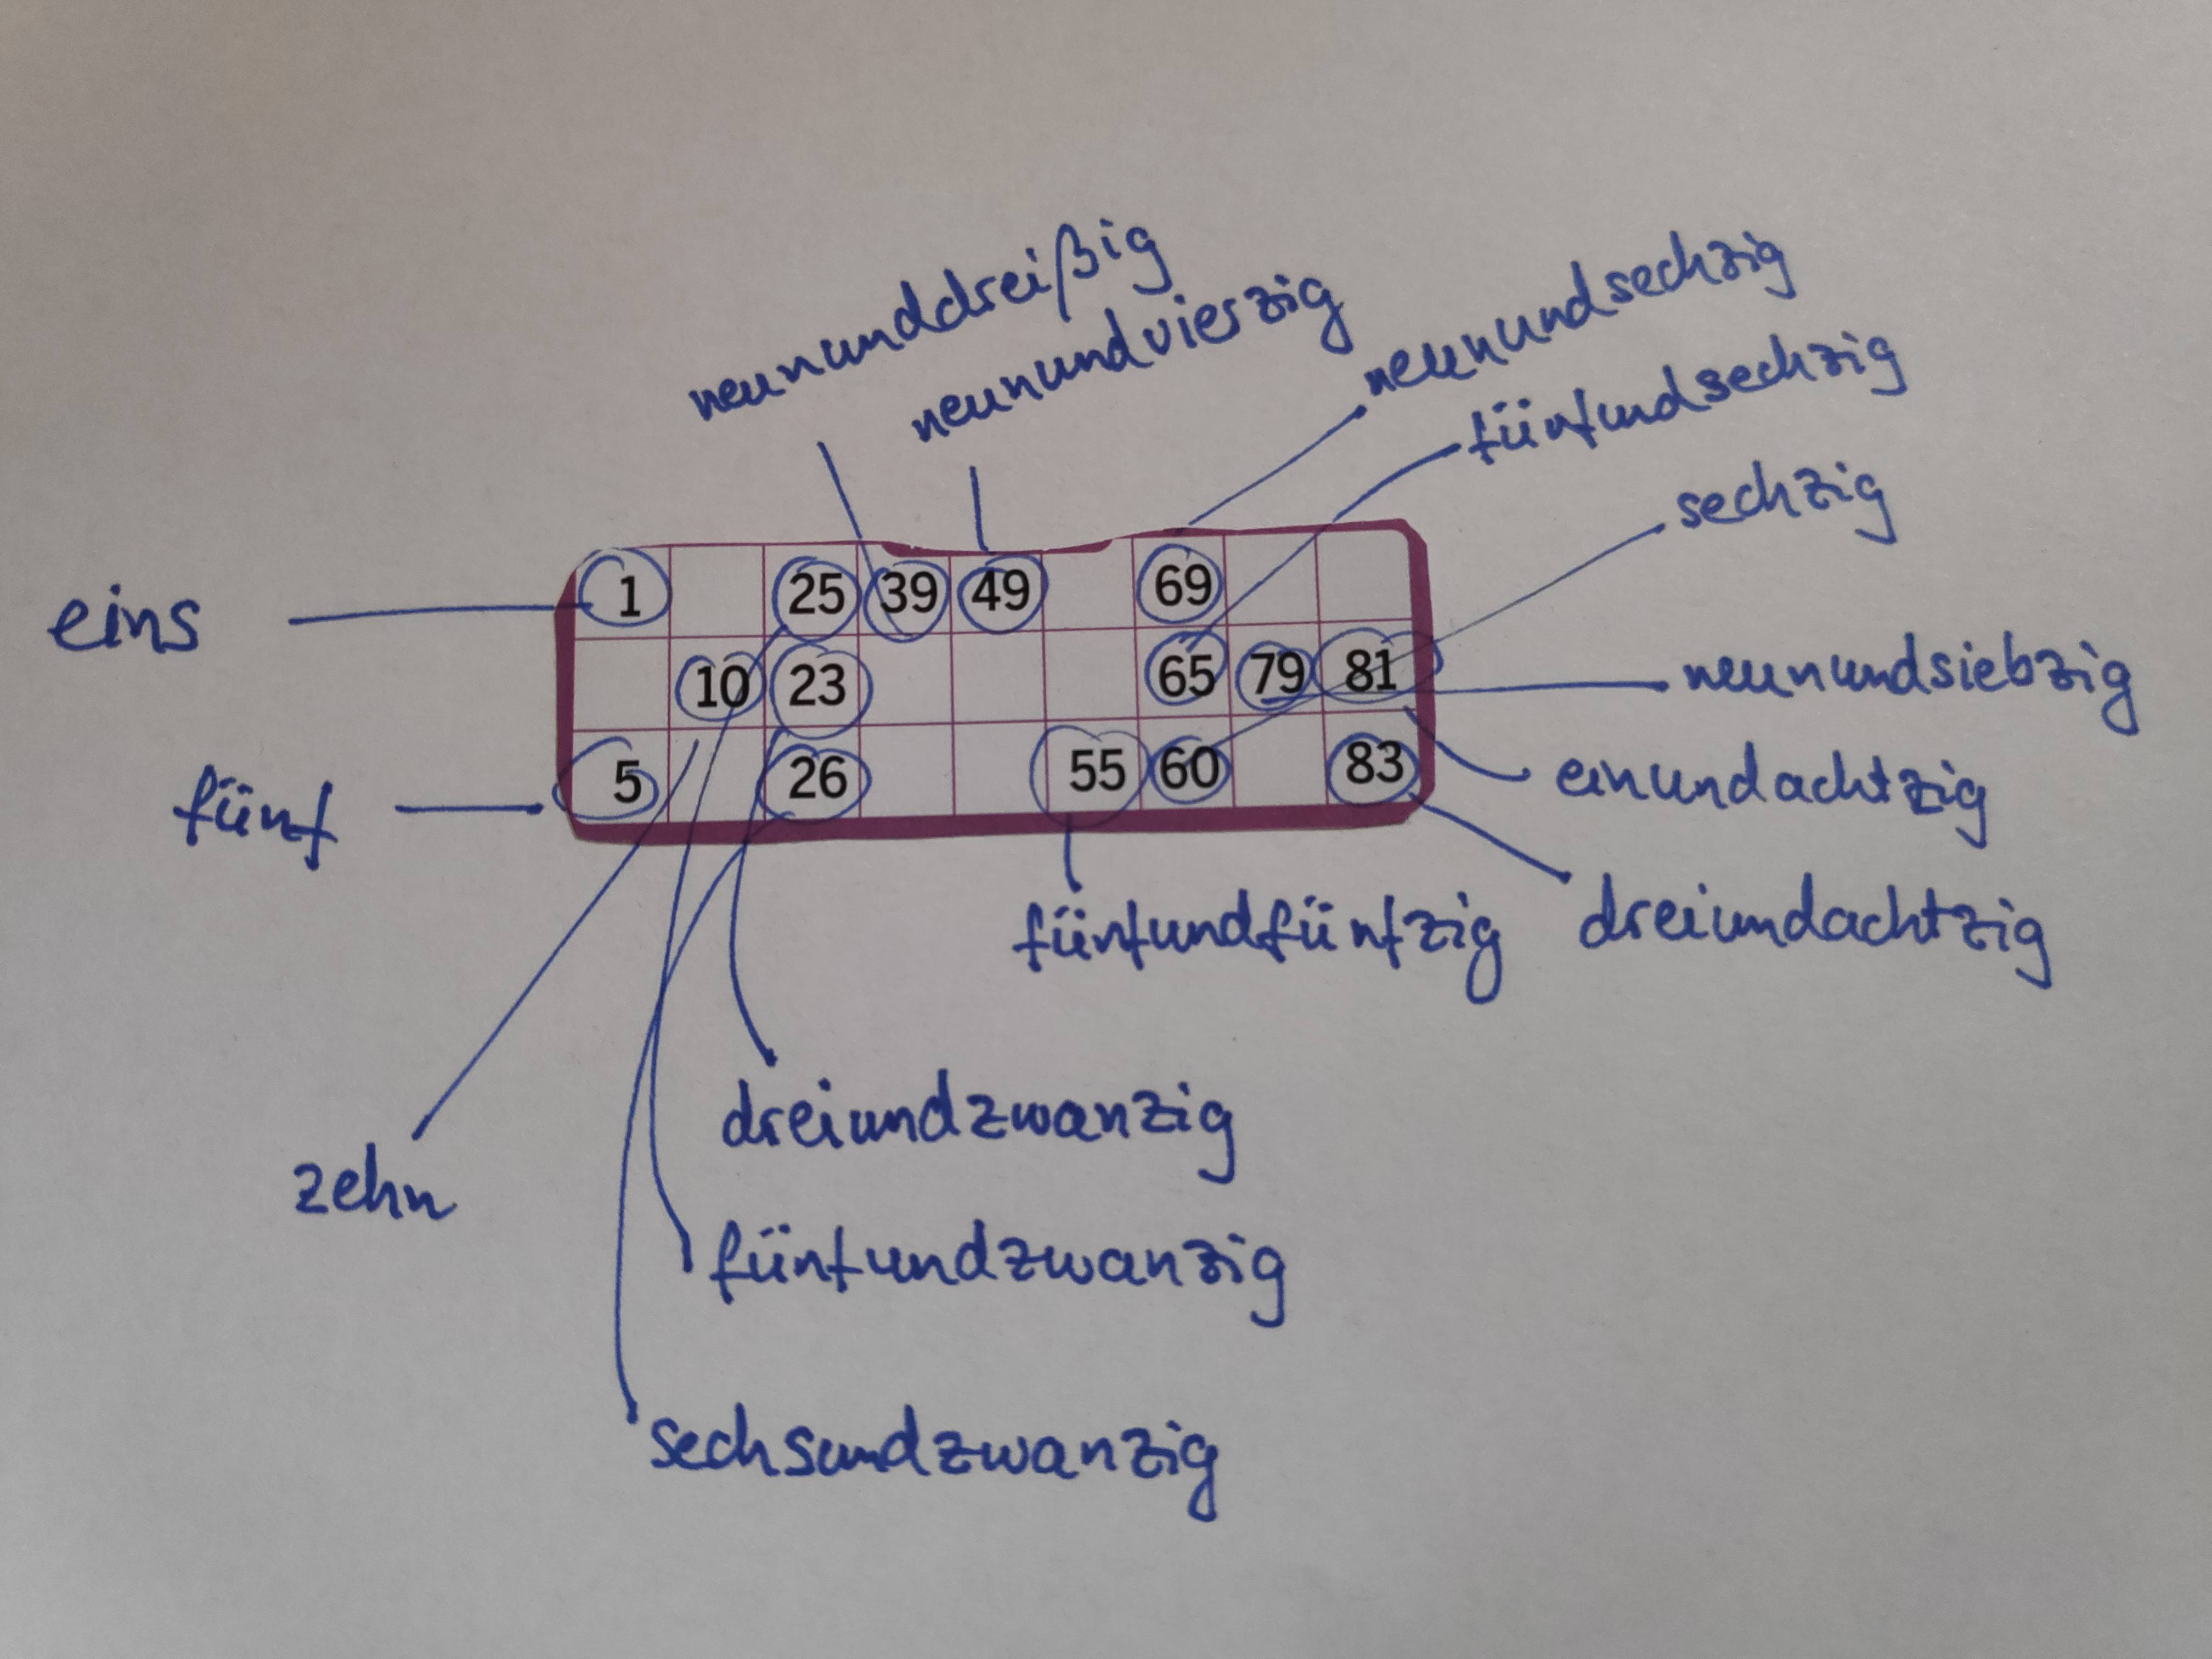 neununddreißig
neunundvierzig
neunundsechzig
fünfundsechzig
sechzig
eins
1 25 39 49 69
10 23 65 79 81
5 26 55 60 83
neunundsiebzig
einundachtzig
fünf
dreiundachtzig
fünfundfünfzig
dreiundzwanzig
zehn
fünfundzwanzig
sechsundzwanzig